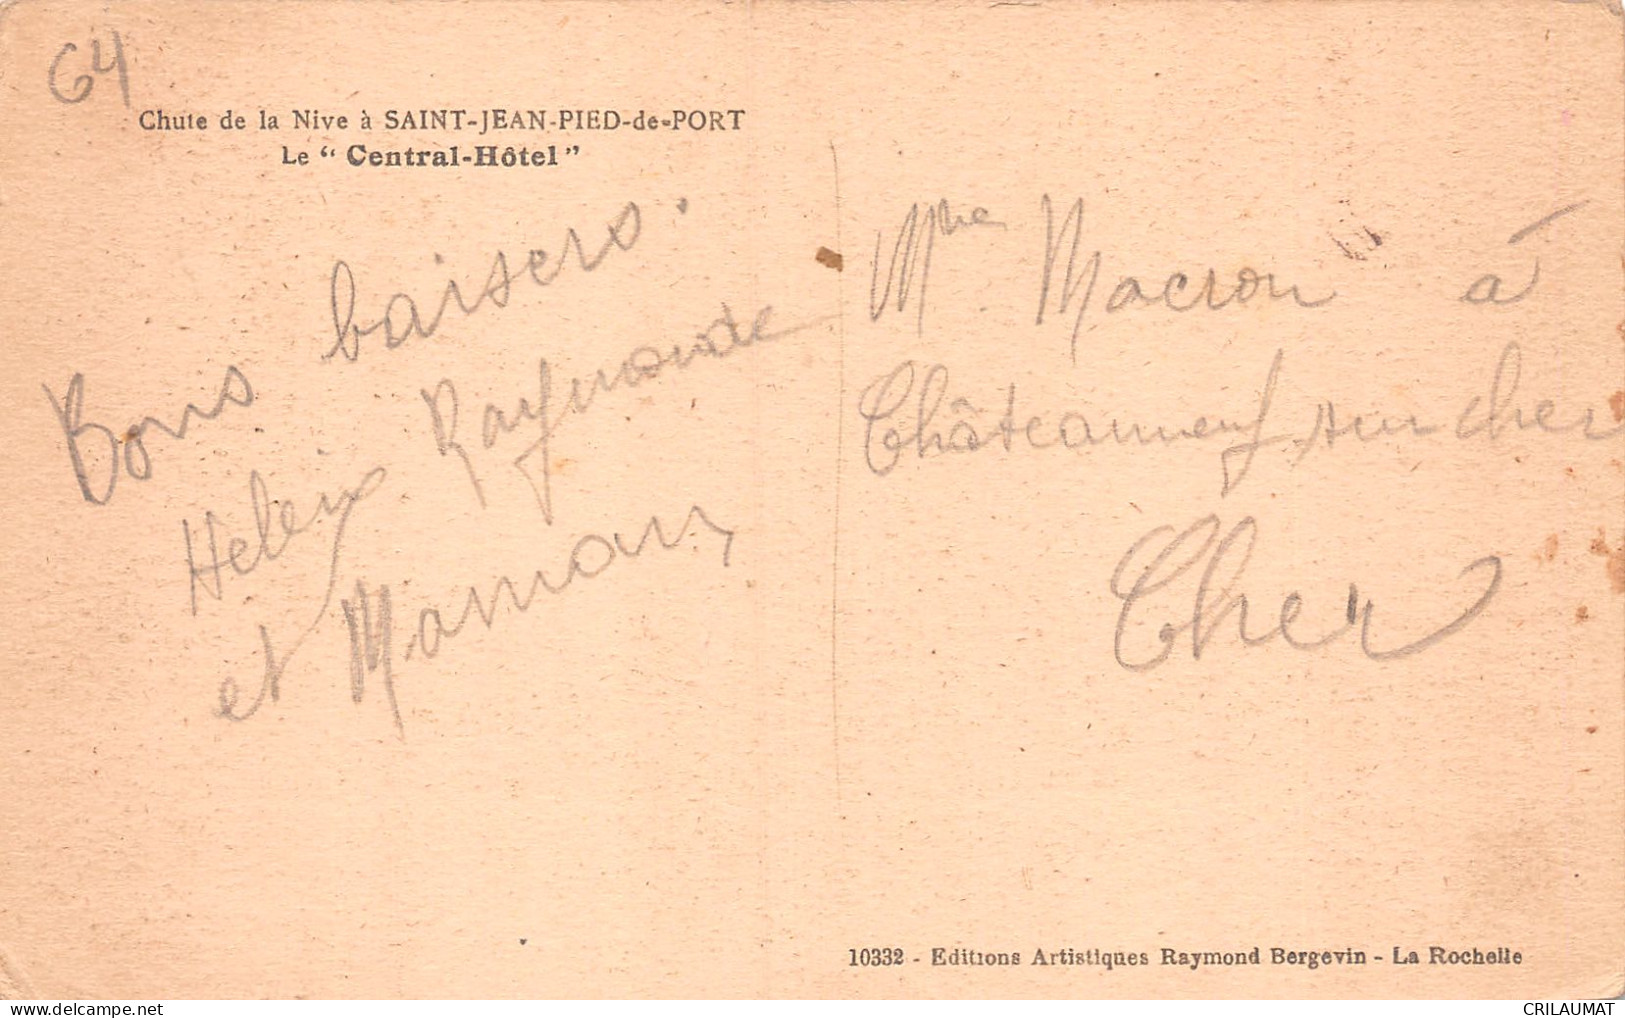 64
Chute de la Nive à SAINT-JEAN-PIED-de-PORT
Le “ Central-Hôtel ”
Bons baisers.
Raymonde
et Maman
Mme Macron à
Châteauneuf sur cher
Cher
10332 - Editions Artistiques Raymond Bergevin - La Rochelle
CRILAUMAT